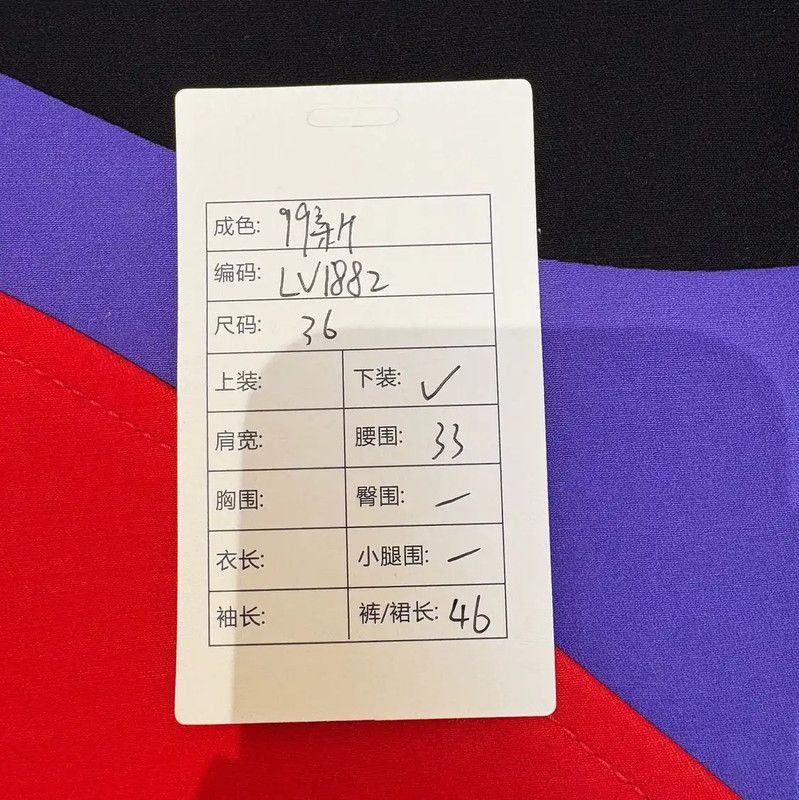 成色: 99新
编码: LV1882
尺码: 36
上装: 下装: ✓
肩宽: 腰围: 33
胸围: 臀围: —
衣长: 小腿围: —
袖长: 裤/裙长: 46